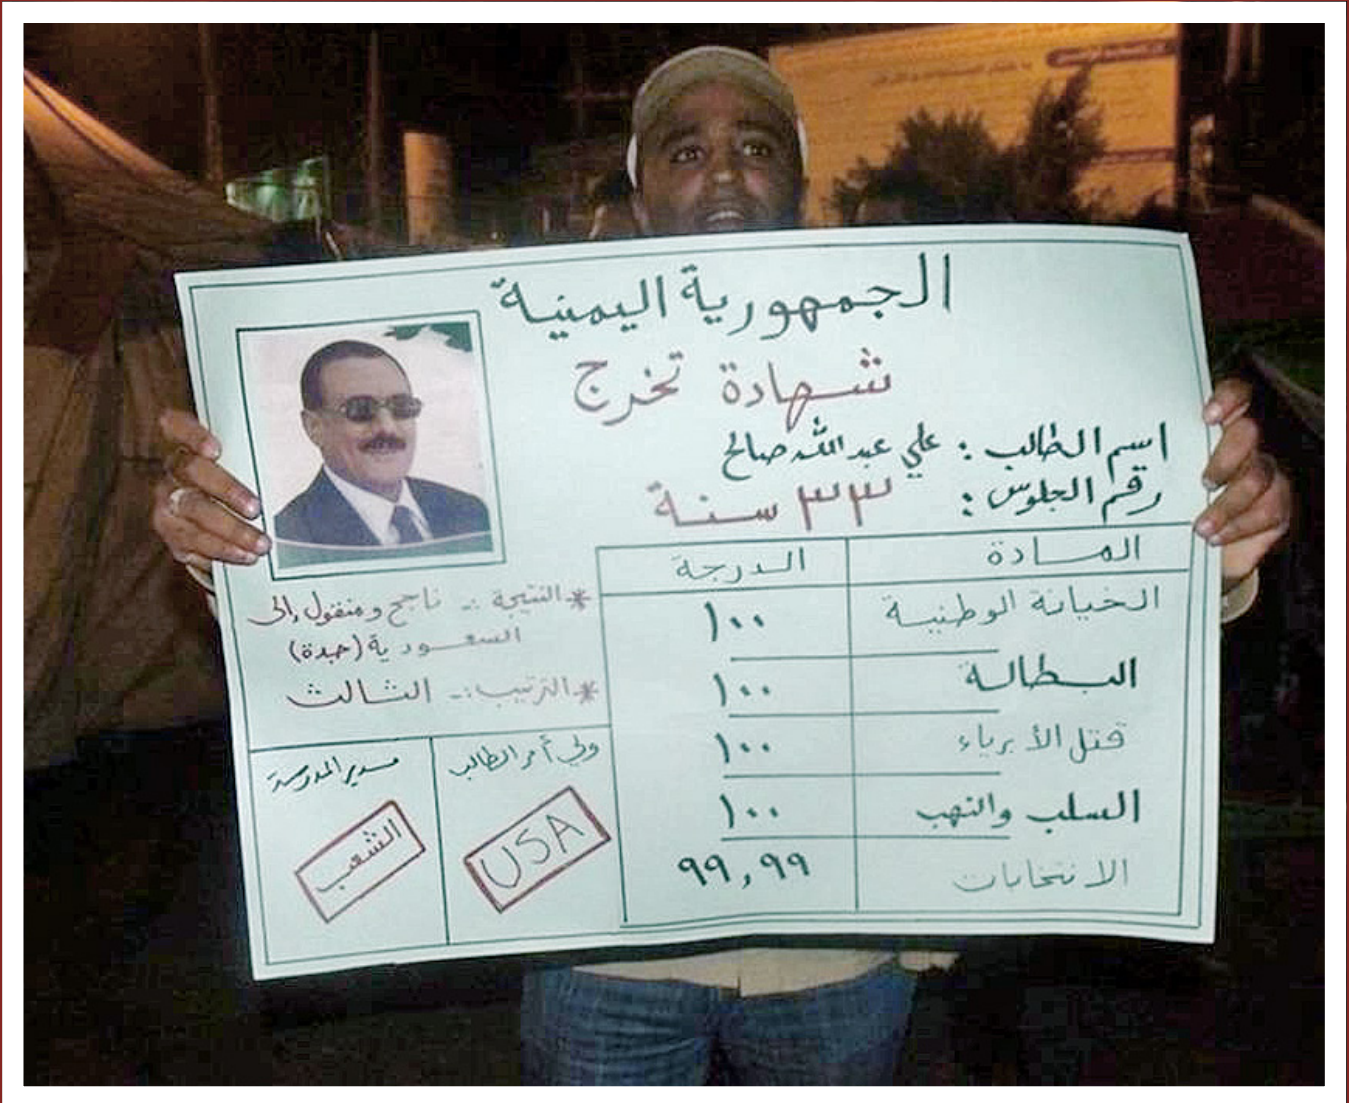 الجمهورية اليمنية
شهادة تخرج
اسم الطالب : علي عبدالله صالح
رقم الجلوس : ٣٣ سنة
المادة الدرجة
الخيانة الوطنية ١٠٠
البطالة ١٠٠
قتل الأبرياء ١٠٠
السلب والنهب ١٠٠
الانتخابات ٩٩,٩٩
*النتيجة :- ناجح ومنقول إلى
السعودية (جدة)
*الترتيب :- الثالث
ولي أمر الطالب
USA
مدير المدرسة
الشعب